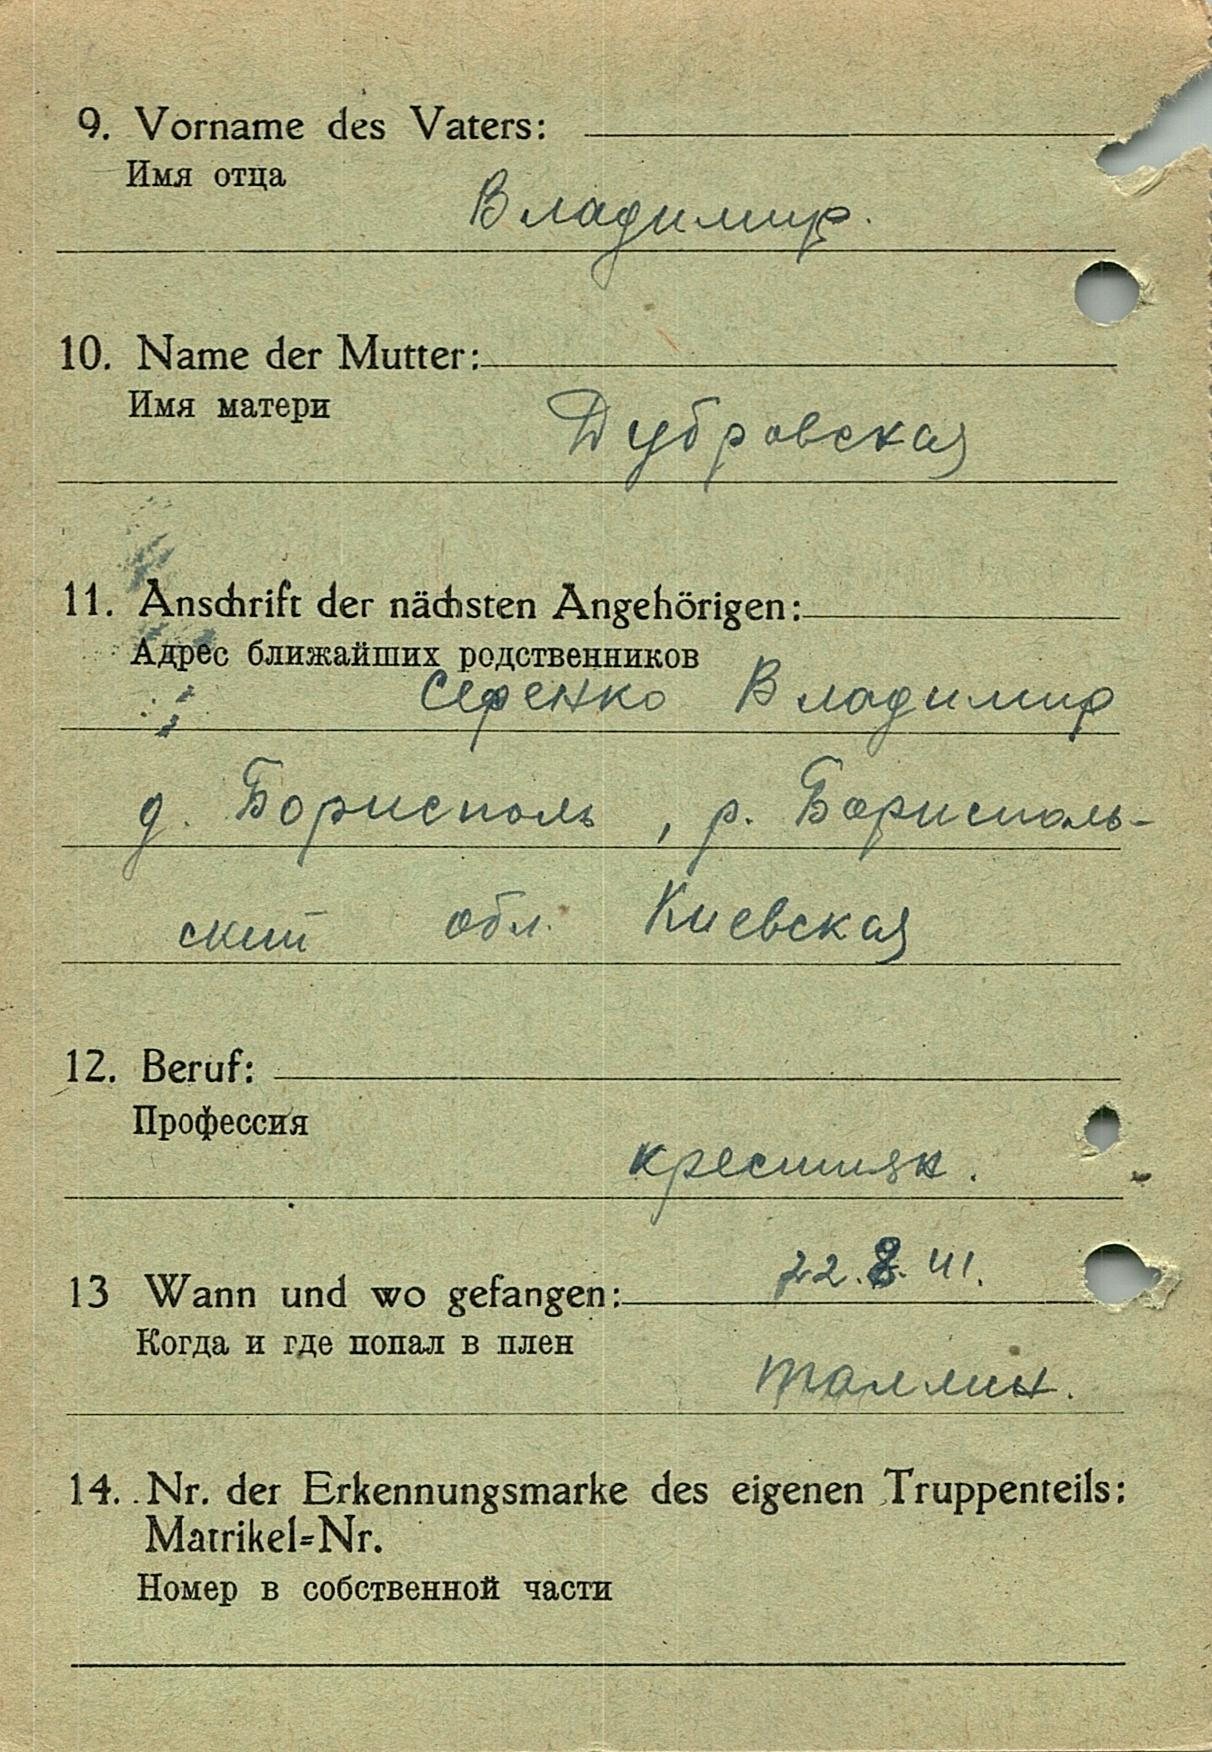 9. Vorname des Vaters:
Имя отца
Владимир.
10. Name der Mutter:
Имя матери
Дубровская
11. Anschrift der nächsten Angehörigen:
Адрес ближайших родственников
Серенко Владимир
д. Борисполь, р. Борисполь-
ский обл. Киевская
12. Beruf:
Профессия
крестиян.
13 Wann und wo gefangen:
22.8.41.
Когда и где попал в плен
Таллин.
14. Nr. der Erkennungsmarke des eigenen Truppenteils:
Matrikel=Nr.
Номер в собственной части